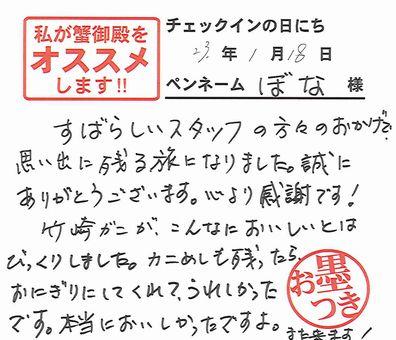 私が蟹御殿を
オススメ
します!!
チェックインの日にち
23年1月18日
ペンネーム ぼな 様
すばらしいスタッフの方々のおかげで
思い出に残る旅になりました。誠に
ありがとうございます。心より感謝です!
竹崎ガニが、こんなにおいしいとは
びっくりしました。カニめしも残ったら、
おにぎりにしてくれて、うれしかった
です。本当においしかったですよ。
また来ます!
お墨つき